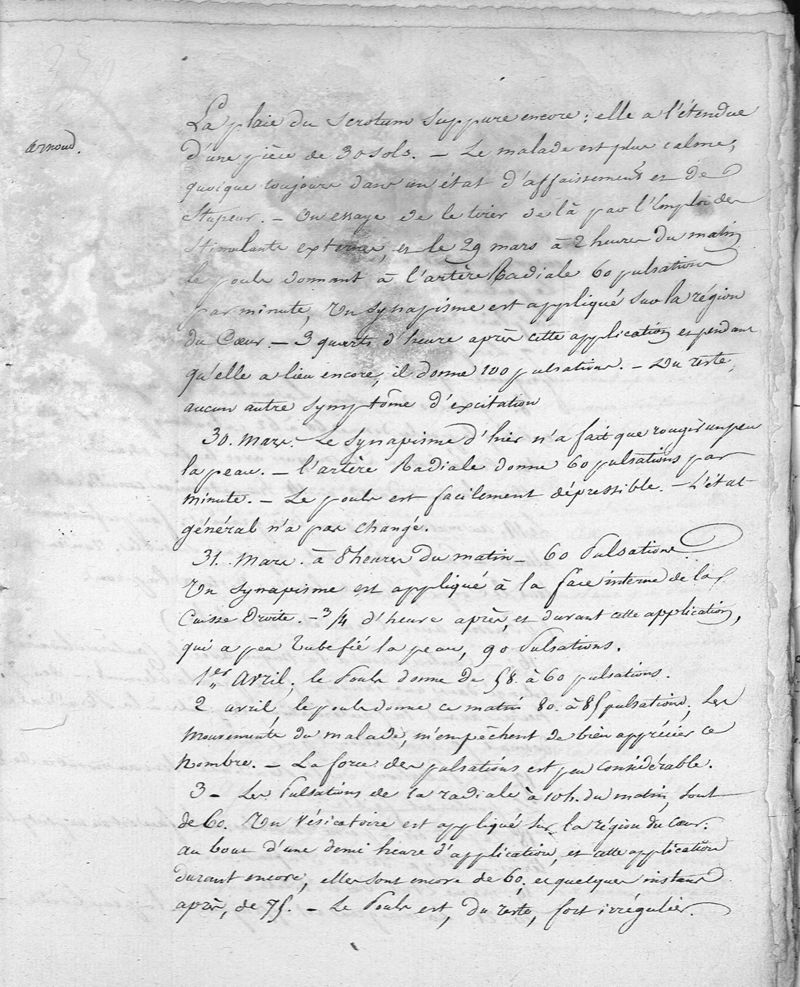 Arnoud.
La plaie du scrotum suppure encore ; elle a l'étendue
d'une pièce de 30 sols. — Le malade est plus calme,
quoique toujours dans un état d'affaissement et de
stupeur. — On essaye de le tirer de là par l'Emploi des
Stimulants externes, et le 29 mars à 2 heures du matin
le pouls donnant à l'artère Radiale 60 pulsations
par minute, un synapisme est appliqué sur la région
du Cœur — 3 quarts d'heure après cette application et pendant
qu'elle a lieu encore, il donne 100 pulsations. — Du reste,
aucun autre symptôme d'excitation
30. Mars. — Le synapisme d'hier n'a fait que rougir un peu
la peau. — l'artère Radiale donne 60 pulsations par
minute. — Le pouls est facilement dépressible. — L'état
général n'a pas changé.
31. Mars. à 8 heures du matin — 60 Pulsations.
Un synapisme est appliqué à la face interne de la
Cuisse Droite. — 3/4 d'heure après, et durant cette application,
qui a peu rubéfié la peau, 90 Pulsations.
1er Avril, le Pouls donne de 58. à 60 pulsations.
2 avril, le pouls donne ce matin 80. à 85 pulsations, Les
mouvements du malade, m'empêchent de bien apprécier ce
nombre. — La force des pulsations est peu considérable.
3 — Les Pulsations de la radiale à 10 h. du matin, sont
de 60. Un Vésicatoire est appliqué sur la région du cœur.
au bout d'une demi heure d'application, et cette application
durant encore, elles sont encore de 60, et quelques instans
après, de 75. — Le Pouls est, du reste, fort irrégulier.